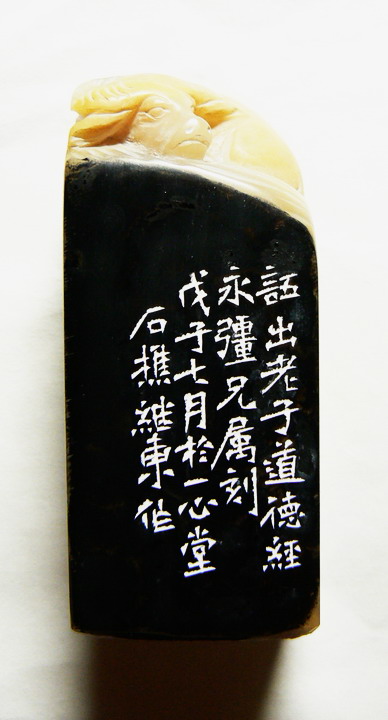 話出老子道德經
永彊兄属刻
戊子七月於一心堂
石樵継東作